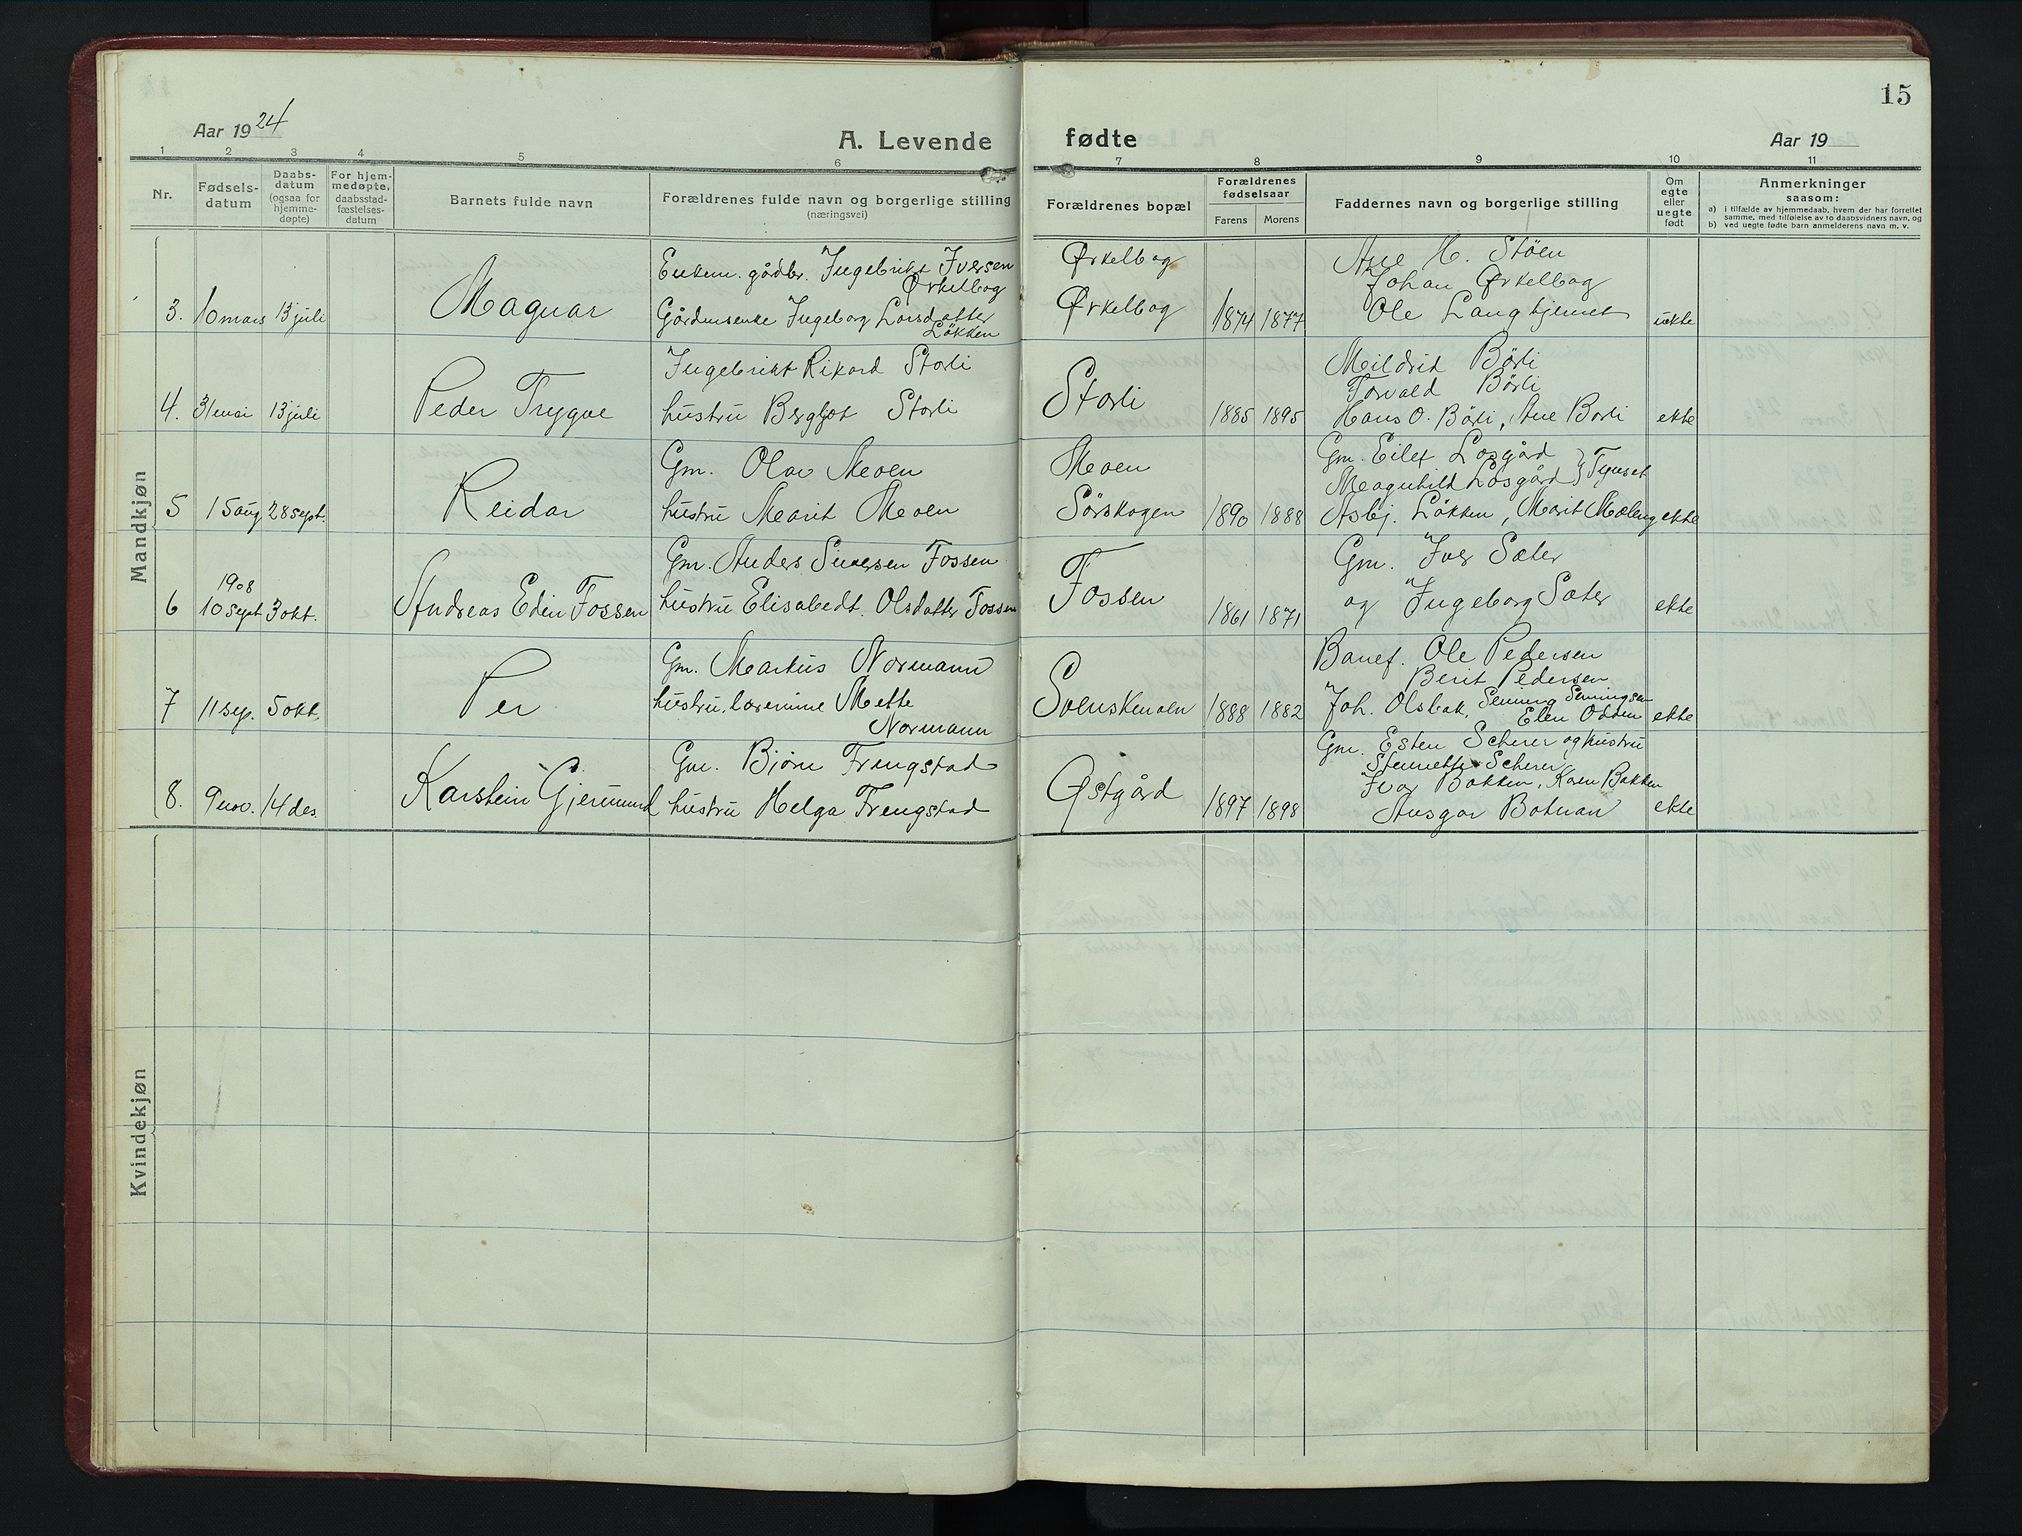 15
Aar 1924
A. Levende
fødte
Aar 19
1 2 3 4 5 6 7 8 9 10 11
Nr.
Fødsels-
datum
Daabs-
datum
(ogsaa for
hjemme-
døpte)
For hjem-
medøpte,
daabsstad-
fæstelses-
datum
Barnets fulde navn
Forældrenes fulde navn og borgerlige stilling
(næringsvei)
Forældrenes bopæl
Forældrenes
fødselsaar
Farens Morens
Faddernes navn og borgerlige stilling
Om
egte
eller
uegte
født
Anmerkninger
saasom:
a) i tilfælde av hjemmedaab, hvem der har forrettet
samme, med tilføielse av to daabsvidners navn, og
b) ved uegte fødte barn anmelderens navn m. v.
Mandkjøn
Enkem. gårdbr. Ingebrikt Iversen
Ørkelbog
Ørkelbog
Ane H. Støen
Johan Ørkelbog
3. 10 mars 13 juli Magnar
Ingeborg Larsdatter
Løkken
Ørkelbog 1874 1877 Ole Langhjemet uekte
Ingebrikt Rikard Storli
Mildrid Børli
Torvald Børli
4. 31 mai 13 juli Peder Trygve hustru Bergljot Storli Storli 1885 1895 Hans O. Børli, Ane Børli ekte
Gm. Olav Moen
Moen
Gm. Eilef Losgård
Magnhild Losgård } Tynset
5 15 aug 28 sept. Reidar hustru Marit Moen Sørskogen 1890 1888 Asbj. Løkken, Marit Mæleng ekte
Gm. Anders Siversen Fossen
Gm. Iver Sæter
1908
6 10 sept 3 okt. Andreas Edin Fossen hustru Elisabedt Olsdatter Fossen Fossen 1861 1871 og Ingeborg Sæter ekte
Gm. Markus Normann
Banef. Ole Pedersen
Berit Pedersen
7 11 sep. 5 okt. Per hustru, lærerinne Mette
Normann
Svenskmoen 1888 1882 Joh. Olsbak,
Elen Odden ekte
Gm. Bjørn Frengstad
Gm. Esten Scherer og hustru
Scherer
Ivar Bakken, Karen Bakken
8. 9 nov. 14 des. Karstein Gjermund hustru Helga Frengstad Østgård 1897 1898 Ansgar Botnan ekte
Kvindekjøn